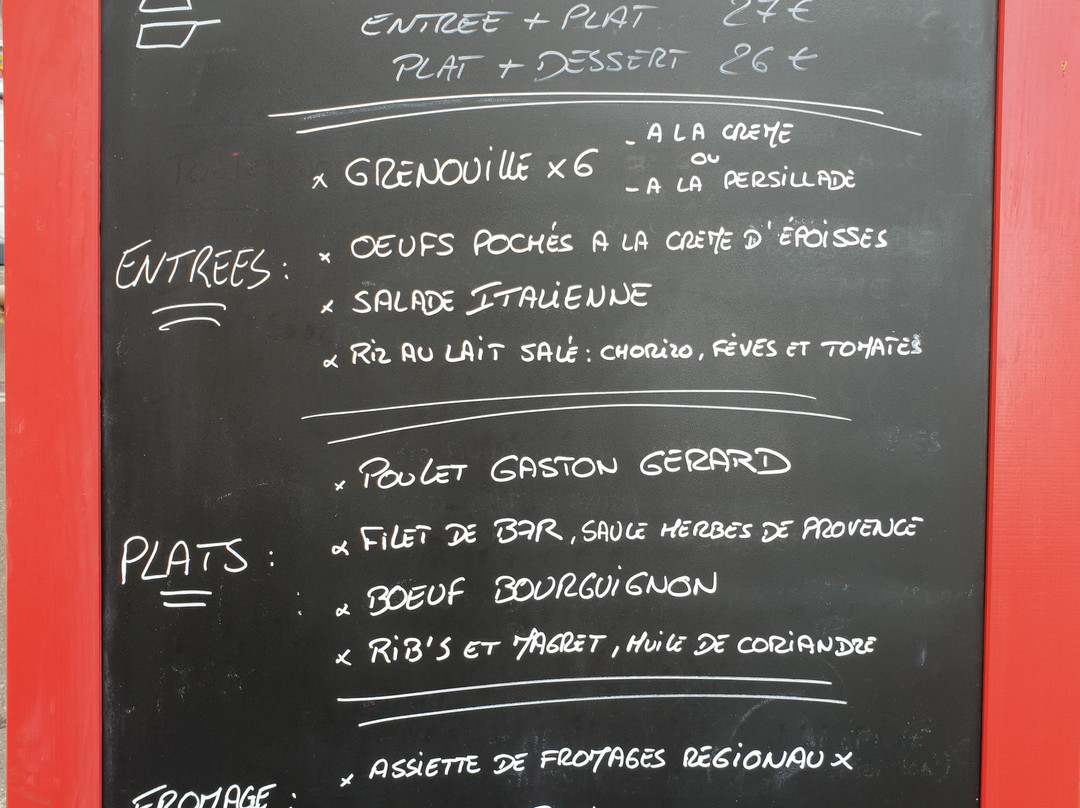 ENTREE + PLAT 27 €
PLAT + DESSERT 26 €
x GRENOUILLE x6 - A LA CREME
OU
- A LA PERSILLADE
ENTREES :
x OEUFS POCHÉS A LA CREME D'ÉPOISSES
x SALADE ITALIENNE
x RIZ AU LAIT SALÉ : CHORIZO, FÈVES ET TOMATES
x POULET GASTON GERARD
PLATS :
x FILET DE BAR, SAUCE HERBES DE PROVENCE
x BOEUF BOURGUIGNON
x RIB'S ET MAGRET, HUILE DE CORIANDRE
x ASSIETTE DE FROMAGES REGIONAUX
FROMAGE :